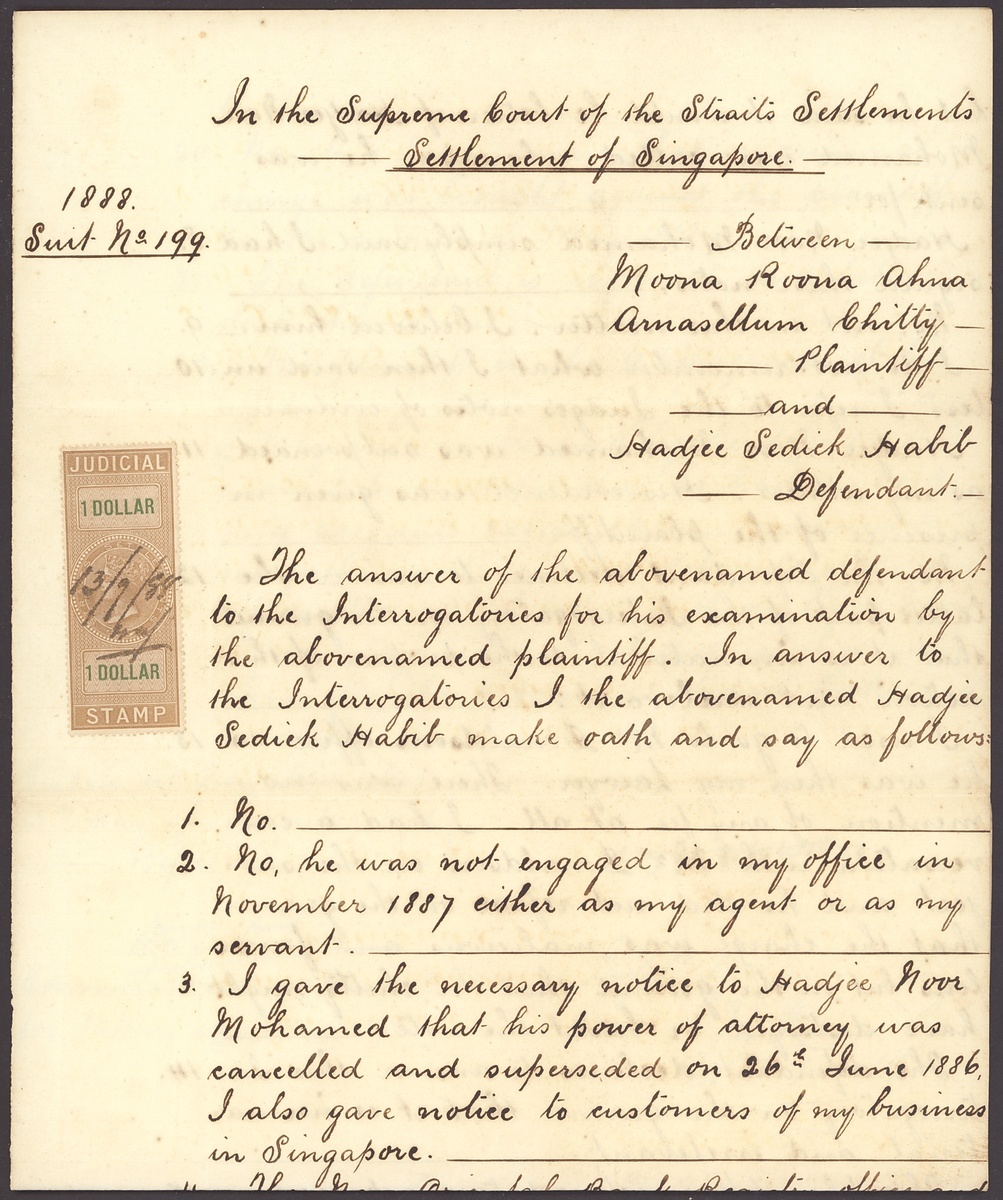 In the Supreme Court of the Straits Settlements
Settlement of Singapore.
1888.
Suit No 199.
Between
Moona Roona Ahna
Arnasellum Chitty
Plaintiff
and
Hadjee Sedick Habib
Defendant.
JUDICIAL
1 DOLLAR
13/9/88
1 DOLLAR
STAMP
The answer of the abovenamed defendant
to the Interrogatories for his examination by
the abovenamed plaintiff. In answer to
the Interrogatories I the abovenamed Hadjee
Sedick Habib make oath and say as follows:
1. No.
2. No, he was not engaged in my office in
November 1887 either as my agent or as my
servant.
3. I gave the necessary notice to Hadjee Noor
Mohamed that his power of attorney was
cancelled and superseded on 26th June 1886,
I also gave notice to customers of my business
in Singapore.
4. The New Oriental Bank Registry office and